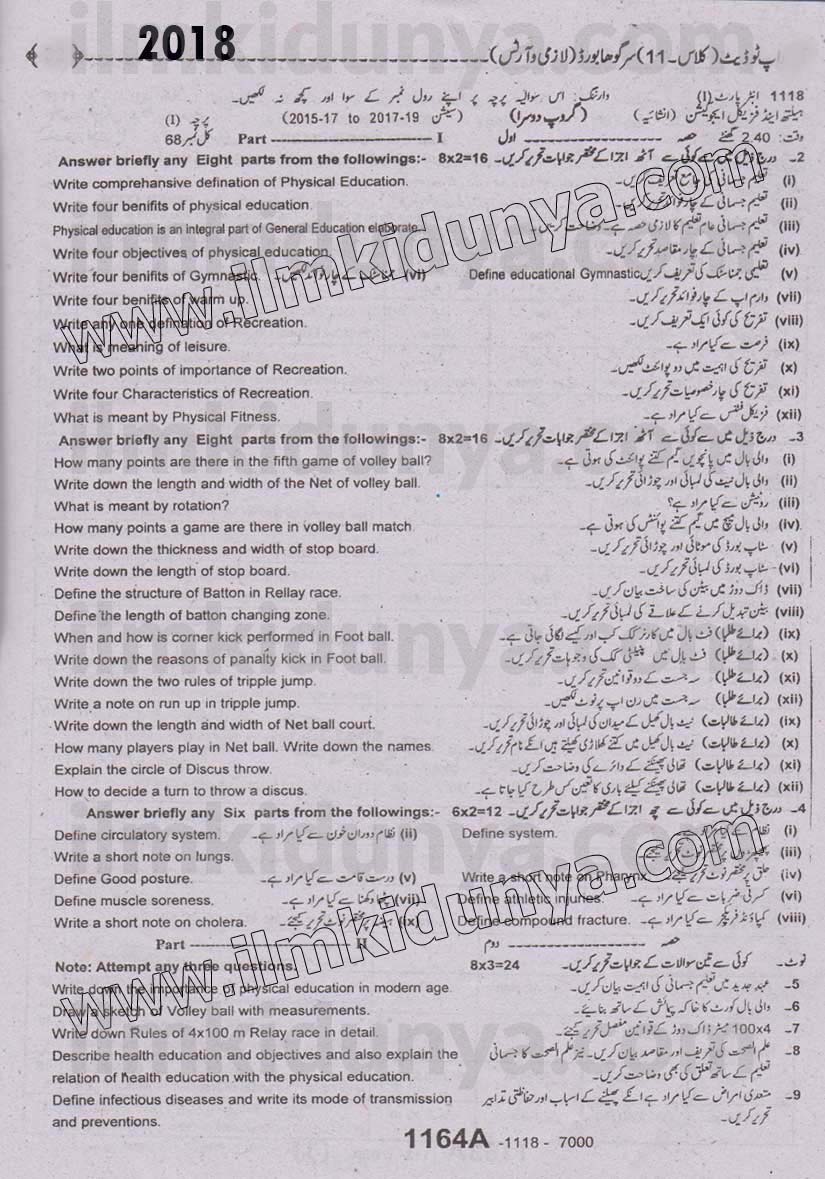 2018
اپ ٹو ڈیٹ (کلاس ۔ 11) سرگودھا بورڈ (لازمی و آرٹس)
1118 انٹر پارٹ (I) وارننگ: اس سوالیہ پرچہ پر اپنے رول نمبر کے سوا اور کچھ نہ لکھیں۔
ہیلتھ اینڈ فزیکل ایجوکیشن (انشائیہ) (گروپ دوسرا) (سیشن 2015-17 to 2017-19) پرچہ (I)
وقت: 2.40 گھنٹے حصہ اول Part I کل نمبر 68
Answer briefly any Eight parts from the followings:- 8x2=16 2۔ درج ذیل میں سے کوئی سے آٹھ اجزا کے مختصر جوابات تحریر کریں۔
Write comprehansive defination of Physical Education. (i) تعلیم جسمانی کی جامع تعریف کریں۔
Write four benifits of physical education. (ii) تعلیم جسمانی کے چار فوائد تحریر کریں۔
Physical education is an integral part of General Education elaborate. (iii) تعلیم جسمانی عام تعلیم کا لازمی حصہ ہے۔ وضاحت کریں۔
Write four objectives of physical education. (iv) تعلیم جسمانی کے چار مقاصد تحریر کریں۔
Write four benifits of Gymnastic. (vi) جمناسٹک کے چار فوائد لکھیں۔ Define educational Gymnastic (v) تعلیمی جمناسٹک کی تعریف کریں
Write four benifits of warm up. (vii) وارم اپ کے چار فوائد تحریر کریں۔
Write any one defination of Recreation. (viii) تفریح کی کوئی ایک تعریف کریں۔
What is meaning of leisure. (ix) فرصت سے کیا مراد ہے۔
Write two points of importance of Recreation. (x) تفریح کی اہمیت میں دو پوائنٹ لکھیں۔
Write four Characteristics of Recreation. (xi) تفریح کی چار خصوصیات تحریر کریں۔
What is meant by Physical Fitness. (xii) فزیکل فٹنس سے کیا مراد ہے۔
Answer briefly any Eight parts from the followings:- 8x2=16 3۔ درج ذیل میں سے کوئی سے آٹھ اجزا کے مختصر جوابات تحریر کریں۔
How many points are there in the fifth game of volley ball? (i) والی بال میں پانچویں گیم کتنے پوائنٹ کی ہوتی ہے۔
Write down the length and width of the Net of volley ball. (ii) والی بال نیٹ کی لمبائی اور چوڑائی تحریر کریں۔
What is meant by rotation? (iii) روٹیشن سے کیا مراد ہے؟
How many points a game are there in volley ball match. (iv) والی بال میچ میں گیم کتنے پوائنٹس کی ہوتی ہے۔
Write down the thickness and width of stop board. (v) سٹاپ بورڈ کی موٹائی اور چوڑائی تحریر کریں۔
Write down the length of stop board. (vi) سٹاپ بورڈ کی لمبائی تحریر کریں۔
Define the structure of Batton in Rellay race. (vii) ڈاک دوڑ میں بیٹن کی ساخت بیان کریں۔
Define the length of batton changing zone. (viii) بیٹن تبدیل کرنے کے علاقے کی لمبائی تحریر کریں۔
When and how is corner kick performed in Foot ball. (ix) (برائے طلبا) فٹ بال میں کارنر کک کب اور کیسے لگائی جاتی ہے۔
Write down the reasons of panalty kick in Foot ball. (x) (برائے طلبا) فٹ بال میں پینلٹی کک کی وجوہات تحریر کریں۔
Write down the two rules of tripple jump. (xi) (برائے طلبا) سہ جست کے دو قوانین تحریر کریں۔
Write a note on run up in tripple jump. (xii) (برائے طلبا) سہ جست میں رن اپ پر نوٹ لکھیں۔
Write down the length and width of Net ball court. (ix) (برائے طالبات) نیٹ بال کھیل کے میدان کی لمبائی اور چوڑائی تحریر کریں۔
How many players play in Net ball. Write down the names. (x) (برائے طالبات) نیٹ بال کھیل میں کتنے کھلاڑی کھیلتے ہیں انکے نام تحریر کریں۔
Explain the circle of Discus throw. (xi) (برائے طالبات) تھالی پھینکنے کے دائرے کی وضاحت کریں۔
How to decide a turn to throw a discus. (xii) (برائے طالبات) تھالی پھینکنے کیلئے باری کا تعین کس طرح کیا جاتا ہے۔
Answer briefly any Six parts from the followings:- 6x2=12 4۔ درج ذیل میں سے کوئی سے چھ اجزا کے مختصر جوابات تحریر کریں۔
Define circulatory system. (ii) نظام دوران خون سے کیا مراد ہے۔ Define system. (i) نظام سے کیا مراد ہے۔
Write a short note on lungs. (iii) پھیپھڑوں پر مختصر نوٹ تحریر کیجئے
Define Good posture. (v) درست قامت سے کیا مراد ہے۔ Write a short note on Pharynx. (iv) حلق پر مختصر نوٹ تحریر کیجئے
Define muscle soreness. (vii) پٹھا دکھنا سے کیا مراد ہے۔ Define athletic injuries. (vi) کسرتی ضربات سے کیا مراد ہے۔
Write a short note on cholera. (ix) ہیضہ پر مختصر نوٹ تحریر کیجئے۔ Define compound fracture. (viii) کمپاؤنڈ فریکچر سے کیا مراد ہے۔
Part II حصہ دوم
Note: Attempt any three questions. 8x3=24 نوٹ۔ کوئی سے تین سوالات کے جوابات تحریر کریں۔
Write down the importance of physical education in modern age. 5۔ عہد جدید میں تعلیم جسمانی کی اہمیت بیان کریں۔
Draw a sketch of Volley ball with measurements. 6۔ والی بال کورٹ کا خاکہ پیمائش کے ساتھ بنائیے۔
Write down Rules of 4x100 m Relay race in detail. 7۔ 100x4 میٹر ڈاک دوڑ کے قوانین مفصل تحریر کیجئے۔
Describe health education and objectives and also explain the 8۔ علم الصحت کی تعریف اور مقاصد بیان کریں۔ نیز علم الصحت کا جسمانی
relation of health education with the physical education. تعلیم کے ساتھ تعلق کی بھی وضاحت کریں۔
Define infectious diseases and write its mode of transmission 9۔ متعدی امراض سے کیا مراد ہے انکے پھیلنے کے اسباب اور حفاظتی تدابیر
and preventions. تحریر کریں۔
1164A -1118 - 7000
www.ilmkidunya.com
www.ilmkidunya.com
ilmkidunya.com